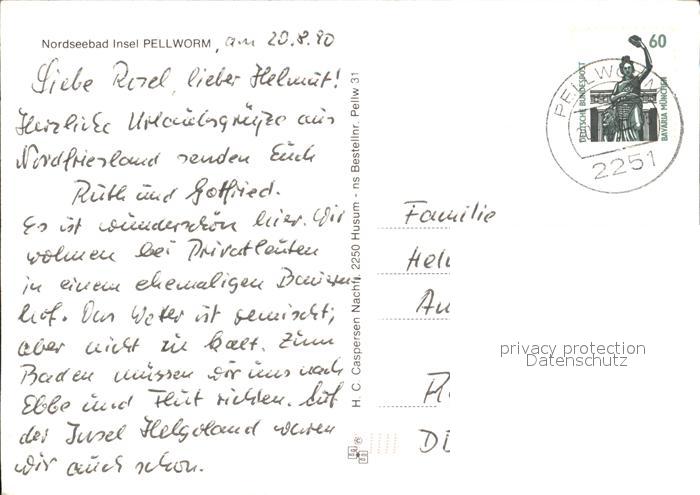 Nordseebad Insel PELLWORM, am 20.8.90
Liebe Rosel, lieber Helmut!
Herzliche Urlaubsgrüße aus
Nordfriesland senden Euch
Ruth und Gotfried.
Es ist wunderschön hier. Wir
wohnen bei Privatleuten
in einem ehemaligen Bauern
hof. Das Wetter ist gemischt,
aber nicht zu kalt. Zum
Baden müssen wir uns nach
Ebbe und Flut richten. Auf
der Insel Helgoland waren
wir auch schon.
H. C. Caspersen Nachf. 2250 Husum - ns Bestellnr. Pellw 31
60
DEUTSCHE BUNDESPOST
BAVARIA MÜNCHEN
PELLWORM
2251
Familie
Hel
privacy protection
Datenschutz